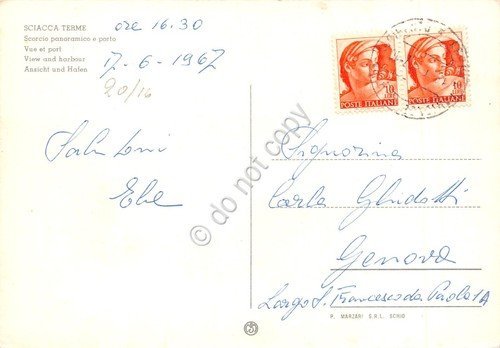 SCIACCA TERME
Scorcio panoramico e porto
Vue et port
View and harbour
Ansicht und Hafen
ore 16.30
17-6-1967
20/16
Saluloni
Ebe
POSTE ITALIANE
POSTE ITALIANE
Signorina
Carla Ghidotti
Genova
Largo S. Francesco da Paola 1A
P. MARZARI S.R.L. SCHIO
do not copy